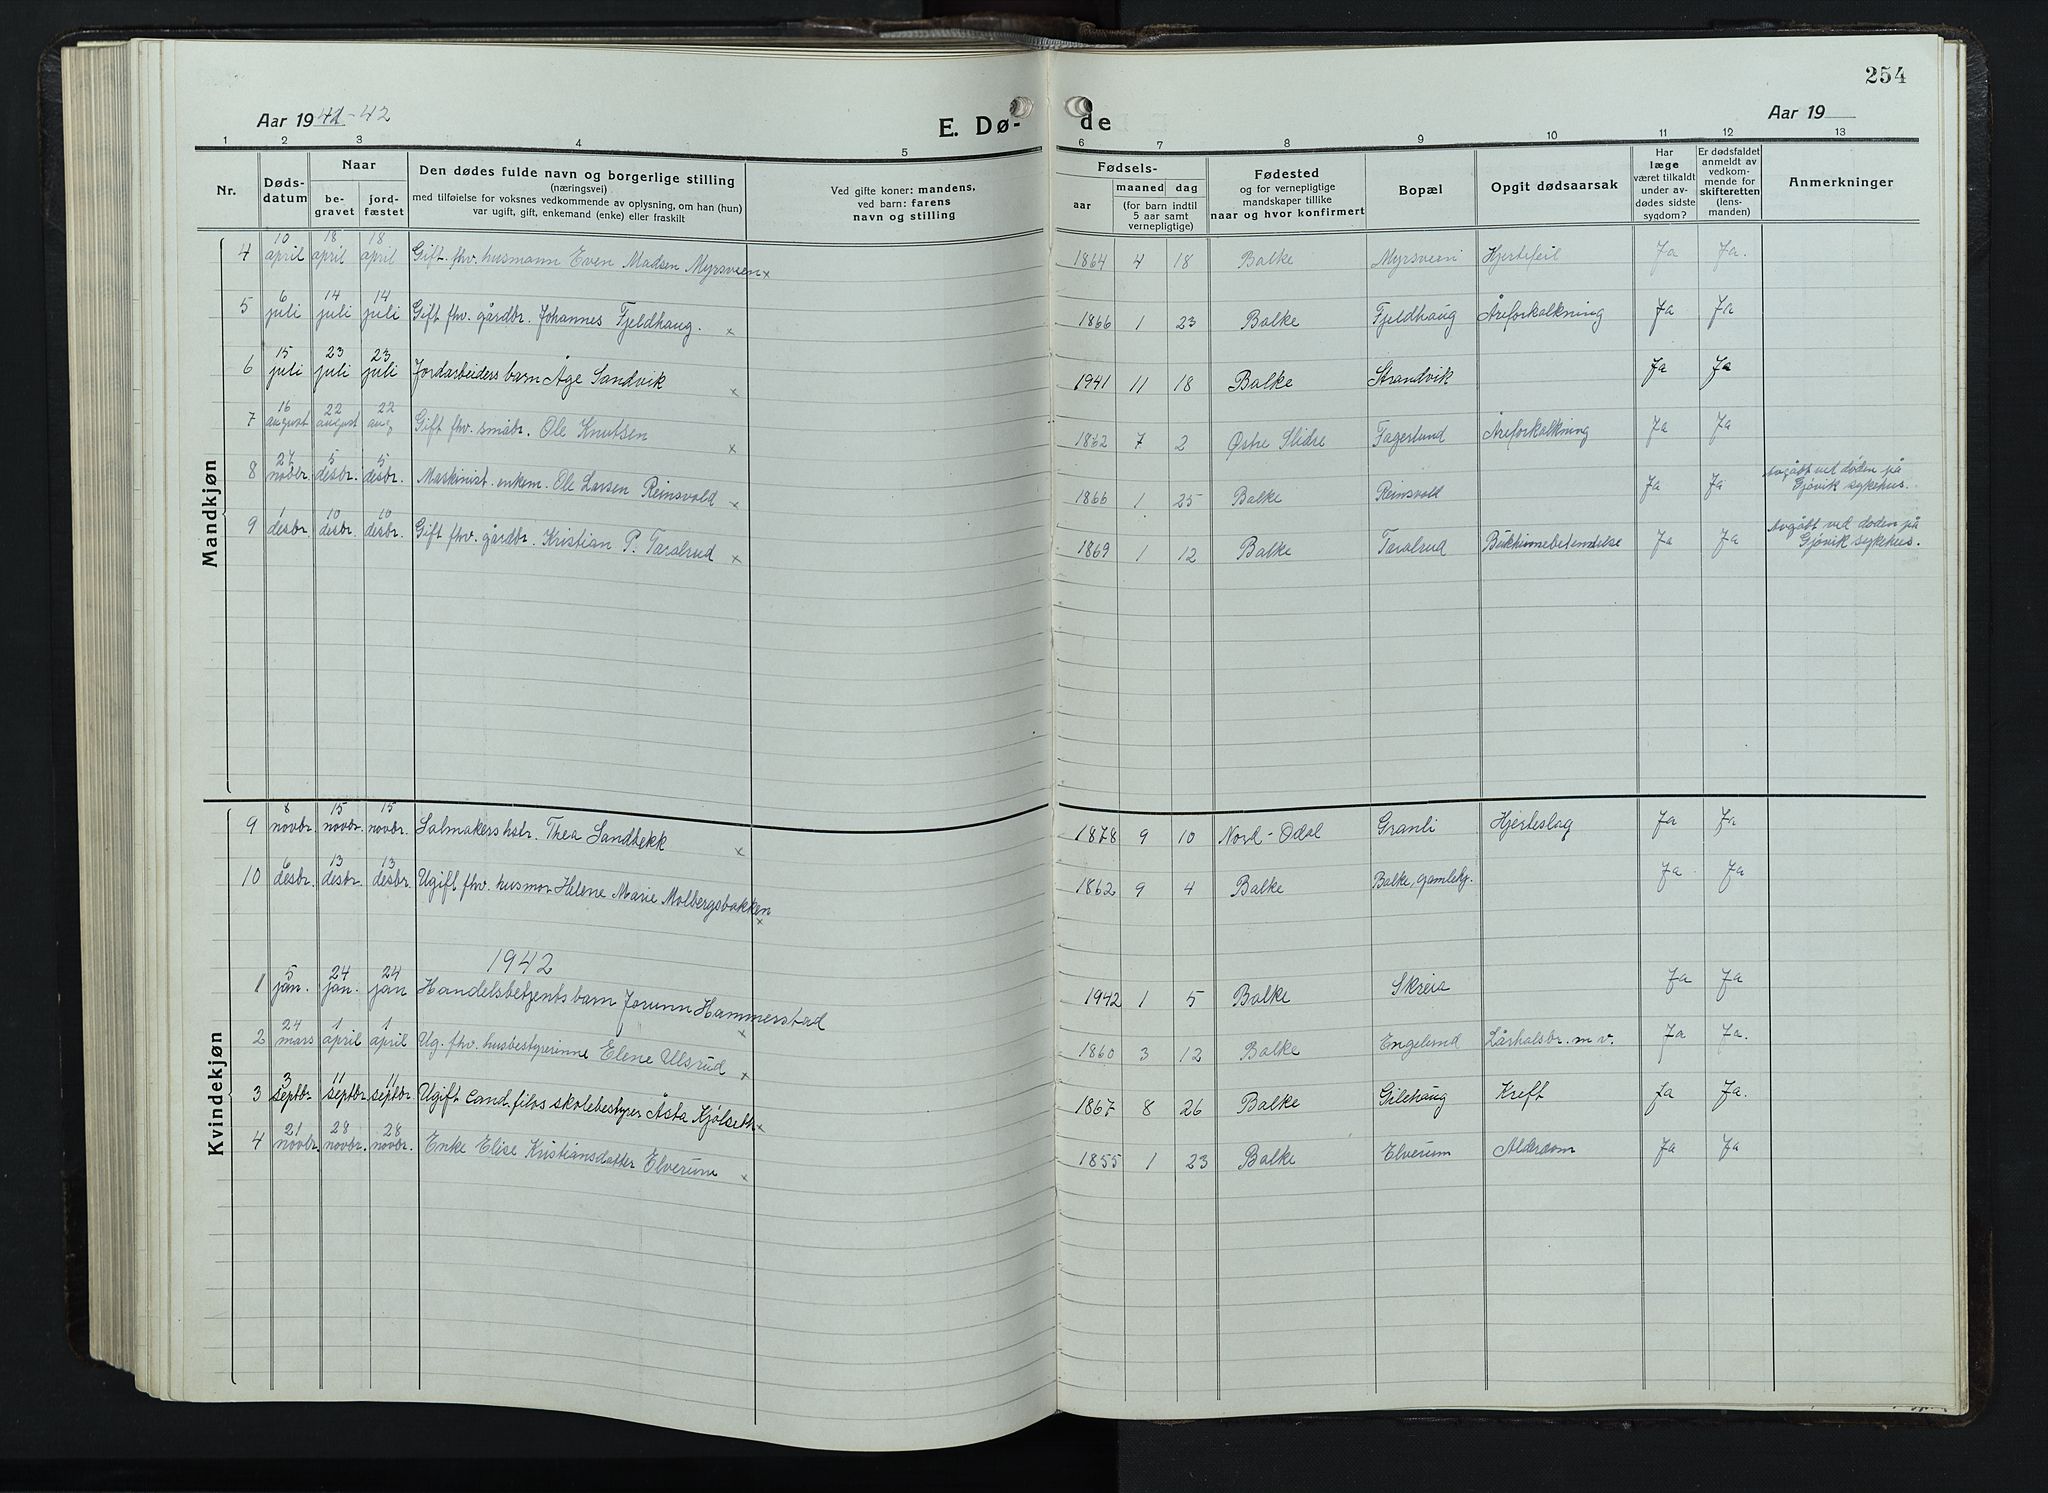 254
Aar 1941-42
E. Dø-
de
Aar 19
1 2 3 4 5 6 7 8 9 10 11 12 13
Nr.
Døds-
datum
Naar
be-
gravet
jord-
fæstet
Den dødes fulde navn og borgerlige stilling
(næringsvei)
med tilføielse for voksnes vedkommende av oplysning, om han (hun)
var ugift, gift, enkemand (enke) eller fraskilt
Ved gifte koner: mandens,
ved barn: farens
navn og stilling
Fødsels-
aar
maaned
dag
(for barn indtil
5 aar samt
vernepligtige)
Fødested
og for vernepligtige
mandskaper tillike
naar og hvor konfirmert
Bopæl
Opgit dødsaarsak
Har
læge
været tilkaldt
under av-
dødes sidste
sygdom?
Er dødsfaldet
anmeldt av
vedkom-
mende for
skifteretten
(lens-
manden)
Anmerkninger
Mandkjøn
4 10 april 18 april 18 april Gift. fhv. husmann Even Madsen Myrsveen x 1864 4 18 Balke Myrsveen Hjertefeil Ja Ja.
5 6 juli 14 juli 14 juli Gift fhv. gårdbr. Johannes Fjeldhaug. x 1866 1 23 Balke Fjeldhaug Åreforkalkning Ja Ja
6 15 juli 23 juli 23 juli Jordarbeiders barn Åge Sandvik x 1941 11 18 Balke Strandvik Ja Ja
7 16 august 22 august 22 aug. Gift fhv. småbr. Ole Knutsen x 1862 7 2 Østre Slidre Fagerlund Åreforkalkning Ja Ja
8 27 novbr. 5 desbr. 5 desbr. Maskinist. enkem. Ole Larsen Reinsvold x 1866 1 25 Balke Reinsvold Ja Ja Avgått ved døden på
Gjøvik sykehus.
9 1 desbr. 10 desbr. 10 desbr. Gift fhv. gårdbr. Kristian P. Taralrud x 1869 1 12 Balke Taralrud Bukhinnebetennelse Ja Ja Avgått ved døden på
Gjøvik sykehus.
Kvindekjøn
9 8 novbr. 15 novbr. 15 novbr. Salmakers hstr. Thea Sandbekk x 1878 9 10 Nord-Odal Granli Hjerteslag Ja Ja
10 6 desbr. 13 desbr. 13 desbr. Ugift fhv. husmor Helene Marie Molbergsbakken x 1862 9 4 Balke Balke, gamlehj. Ja Ja
1942
1 5 jan. 24 jan. 24 jan Handelsbetjents barn Jorunn Hammerstad x 1942 1 5 Balke Skreia Ja Ja
2 24 mars 1 april 1 april Ug. fhv. husbestyrerinne Elene Ulsrud x 1860 3 12 Balke Engelund Lårhalsbr. m v. Ja Ja.
3 3 septbr. 11 septbr. 11 septbr. Ugift Cand. filos skolebestyrer Åsta Kjølseth x 1867 8 26 Balke Gilehaug Kreft Ja Ja.
4 21 novbr. 28 novbr. 28 novbr. Enke Elise Kristiansdatter Elverum x 1855 1 23 Balke Elverum Alderdom Ja Ja